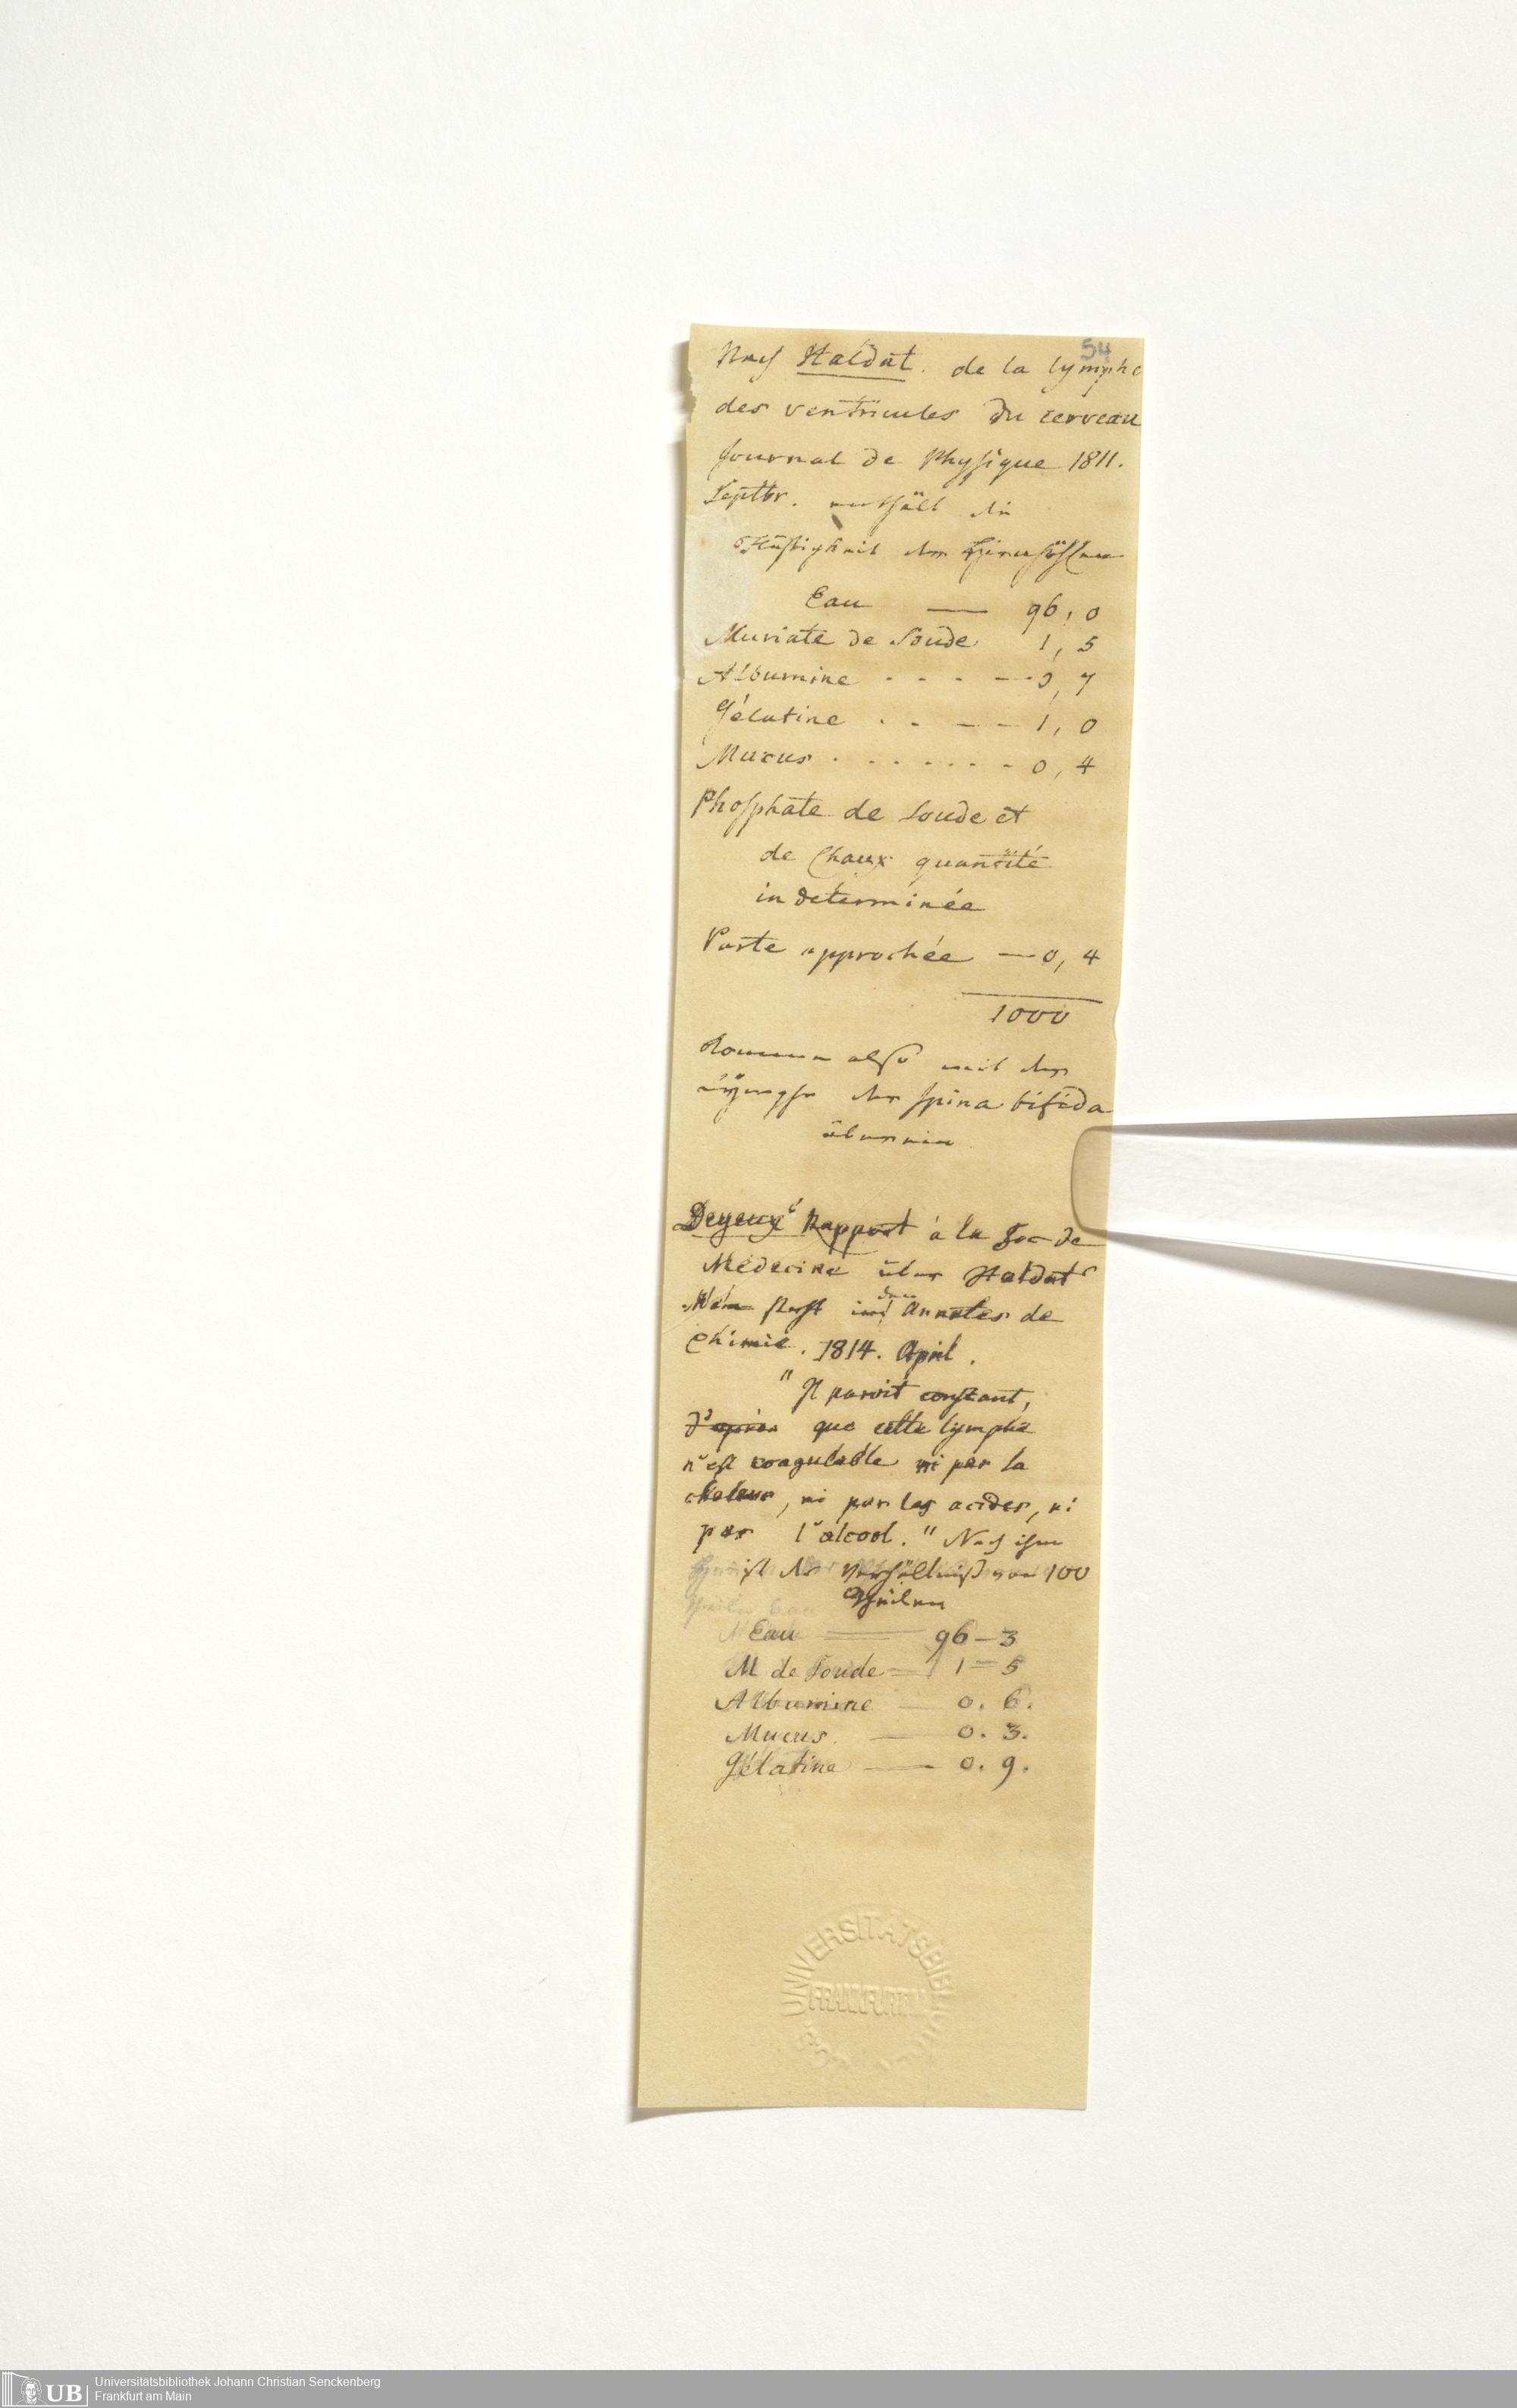 54
Nach Haldat. de la lymphe
des ventricules du cerveau
Journal de Physique 1811.
Septbr. enthält die
Flüßigkeit der Hirnhöhlen
Eau — 96,0
Muriate de Soude 1,5
Albumine - - - - - 0,7
Gélatine . . - - 1,0
Mucus . . . . . . - 0,4
Phosphate de Soude et
de Chaux quantité
indeterminée
Parte approchée — 0,4
1000
Kommen also mit der
Lymphe der Spina bifida
überein
Deyeux's Rapport à la Soc de
Médecine über Haldat's
steht in den Annales de
Chimie. 1814. April.
"Il paroit constant,
d'après que cette lymphe
n'est coagulable ni par la
chaleur, ni par les acides, ni
par l'alcool." Nach ihm
ist das Verhältniß von 100
Theilen
Eau — 96-3
M de Soude — 1-5
Albumine — 0. 6.
Mucus. — 0. 3.
Gélatine — 0. 9.
UNIVERSITÄTSBIBL
FRANKFURT/M
UB
Universitätsbibliothek Johann Christian Senckenberg
Frankfurt am Main